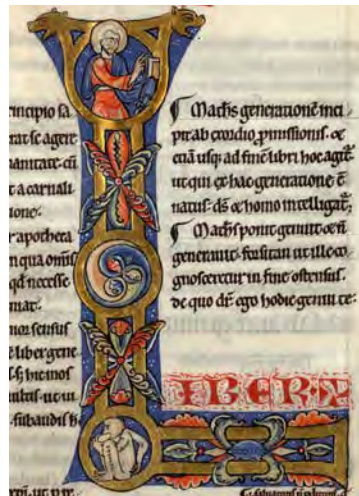 rincipio sa
rat se agere
anitate. cū
t a carnali
ione.
r apotheca
n qua omīs
qd necesse
mat.
mor sensus
ē liber gene
hic mos
ultis. ut in
subaudis h
Maths generationē inci
pit ab exordio pmissionis. &
etiā usq; ad finē libri hoc agit
ut qui ex hac generatione ē
natus. ds & homo intelligat;
Maths ponit genuit & n̄
generauit. forsitan ut ille co
gnosceretur in fine ostensus.
de quo dr̄ ego hodie genui te.
L IBER